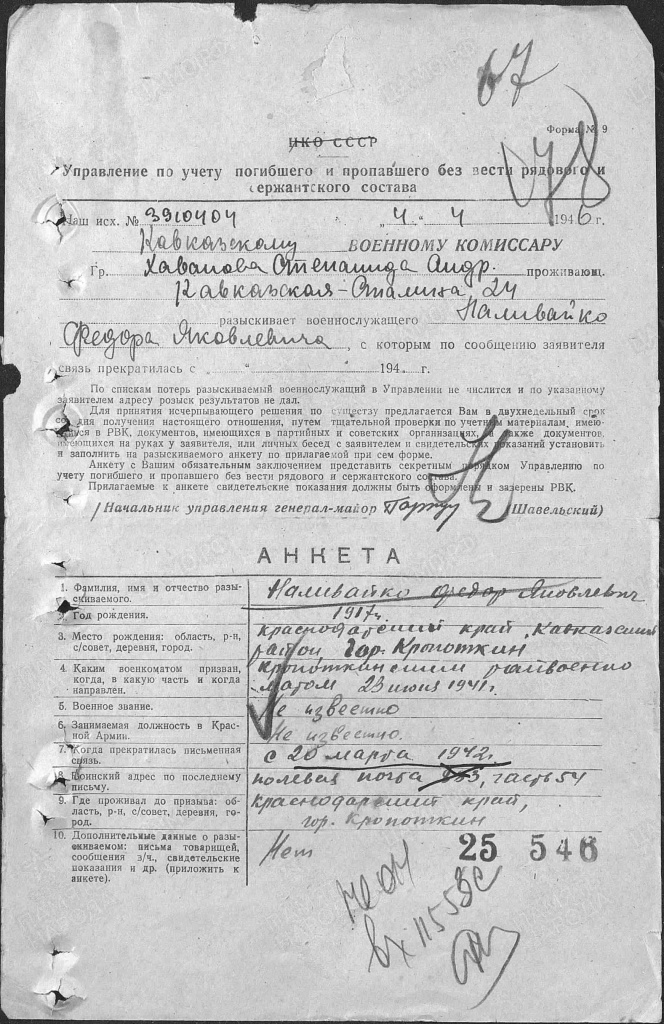 67
Форма № 9
078
НКО СССР
Управление по учету погибшего и пропавшего без вести рядового и
сержантского состава
Наш исх. № 3910404 „4“ 4 1946 г.
Кавказскому ВОЕННОМУ КОМИССАРУ
Гр. Степанида Андр. проживающ.
Кавказская-Сталина 24
разыскивает военнослужащего Наливайко
Федора Яковлевича, с которым по сообщению заявителя
связь прекратилась с „ “ 194 г.
По спискам потерь разыскиваемый военнослужащий в Управлении не числится и по указанному
заявителем адресу розыск результатов не дал.
Для принятия исчерпывающего решения по существу предлагается Вам в двухнедельный срок
со дня получения настоящего отношения, путем тщательной проверки по учетным материалам, имею-
щихся в РВК, документов, имеющихся в партийных и советских организациях, а также документов,
имеющихся на руках у заявителя, или личных бесед с заявителем и свидетельских показаний установить
и заполнить на разыскиваемого анкету по прилагаемой при сем форме.
Анкету с Вашим обязательным заключением представить секретным порядком Управлению по
учету погибшего и пропавшего без вести рядового и сержантского состава.
Прилагаемые к анкете свидетельские показания должны быть оформлены и заверены РВК.
Начальник управления генерал-майор (Шавельский)
АНКЕТА
1. Фамилия, имя и отчество разы-
скиваемого. Наливайко Федор Яковлевич
2. Год рождения. 1917г.
3. Место рождения: область, р-н, краснодарский край, Кавказский
с/совет, деревня, город. район гор. Кропоткин
4. Каким военкоматом призван, кропоткинским райвоенко
когда, в какую часть и когда
направлен. матом 23 июня 1941г.
5. Военное звание. Не известно
6. Занимаемая должность в Крас-
ной Армии. Не известно.
7. Когда прекратилась письменная
связь. с 20 марта 1942г.
8. Воинский адрес по последнему
письму. полевая почта часть 54
9. Где проживал до призыва: об- краснодарский край,
ласть, р-н, с/совет, деревня, го-
род. гор. Кропоткин
10. Дополнительные данные о разы-
скиваемом: письма товарищей, Нет 25 546
сообщения з/ч., свидетельские
показания и др. (приложить к
анкете).
вх 11553с